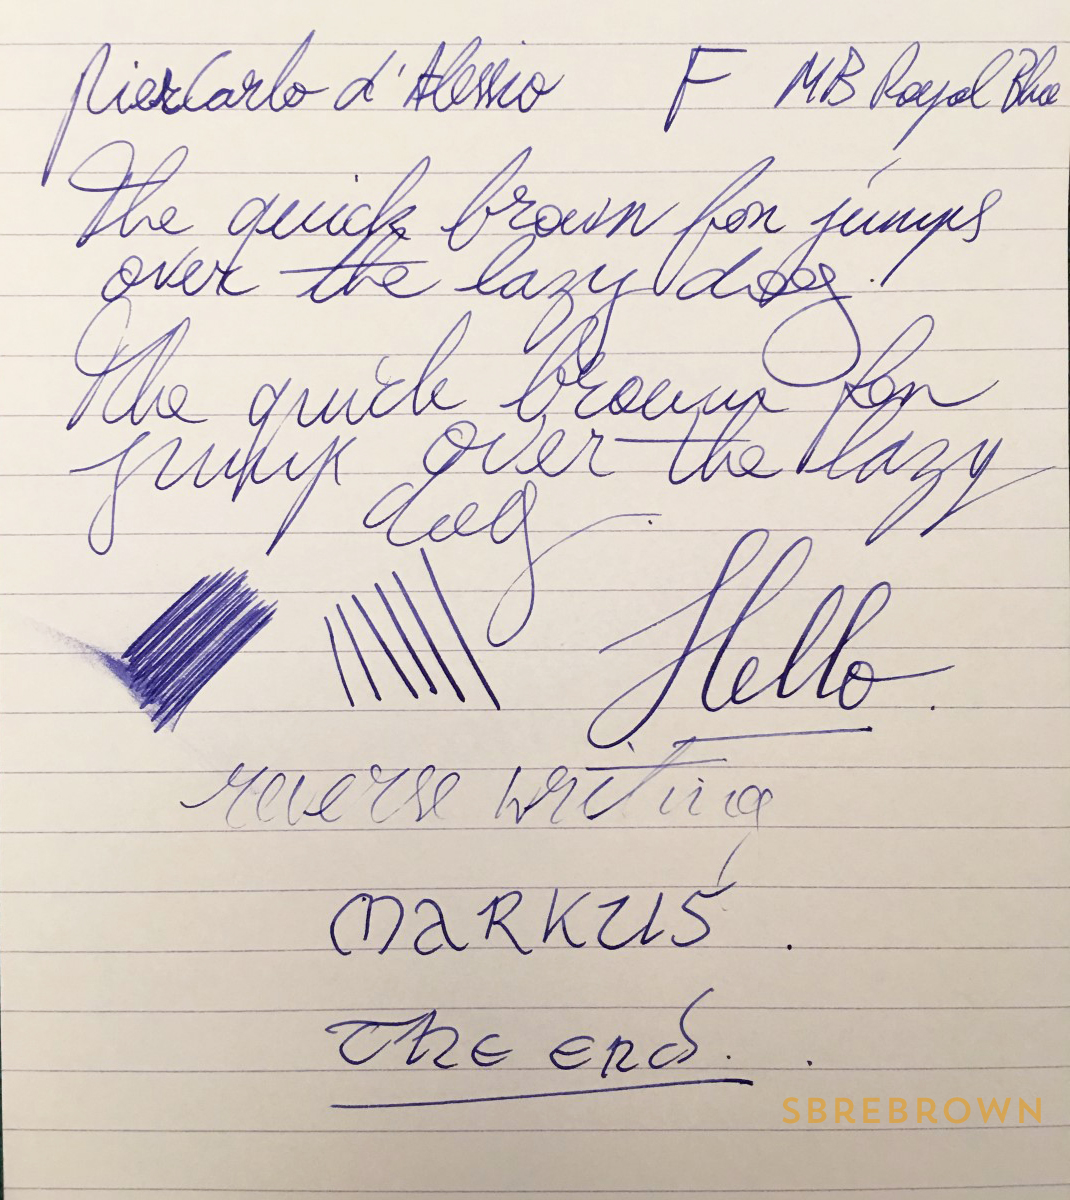 PierCarlo d'Alessio F MB Royal Blue
The quick brown fox jumps
over the lazy dog.
The quick brown fox
jumps over the lazy
dog.
Hello.
reverse writing
MARKUS.
The end. .
SBREBROWN